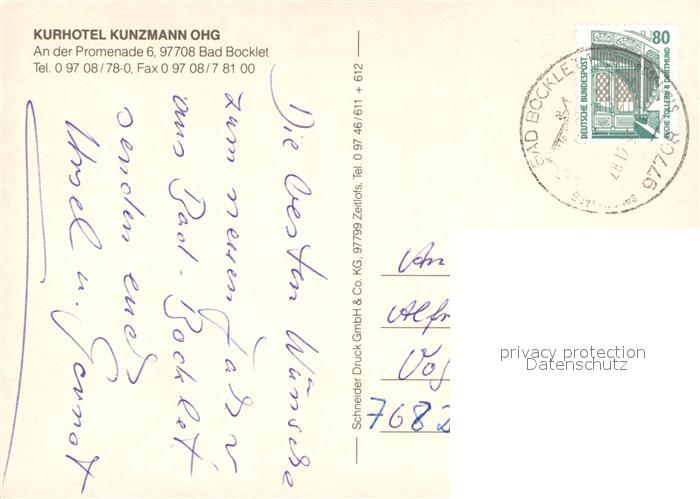 KURHOTEL KUNZMANN OHG
An der Promenade 6, 97708 Bad Bocklet
Tel. 0 97 08/78-0, Fax 0 97 08/7 81 00
Die besten Wünsche
zum neuen Jahr
aus Bad-Bocklet
senden euch
Ursel u. Gernot
Schneider Druck GmbH & Co. KG, 97799 Zeitlofs, Tel. 0 97 46/611 + 612
80
DEUTSCHE BUNDESPOST
ZECHE ZOLLERN II DORTMUND
BAD BOCKLET
97708
An
Alfr
Vo
7682
privacy protection
Datenschutz